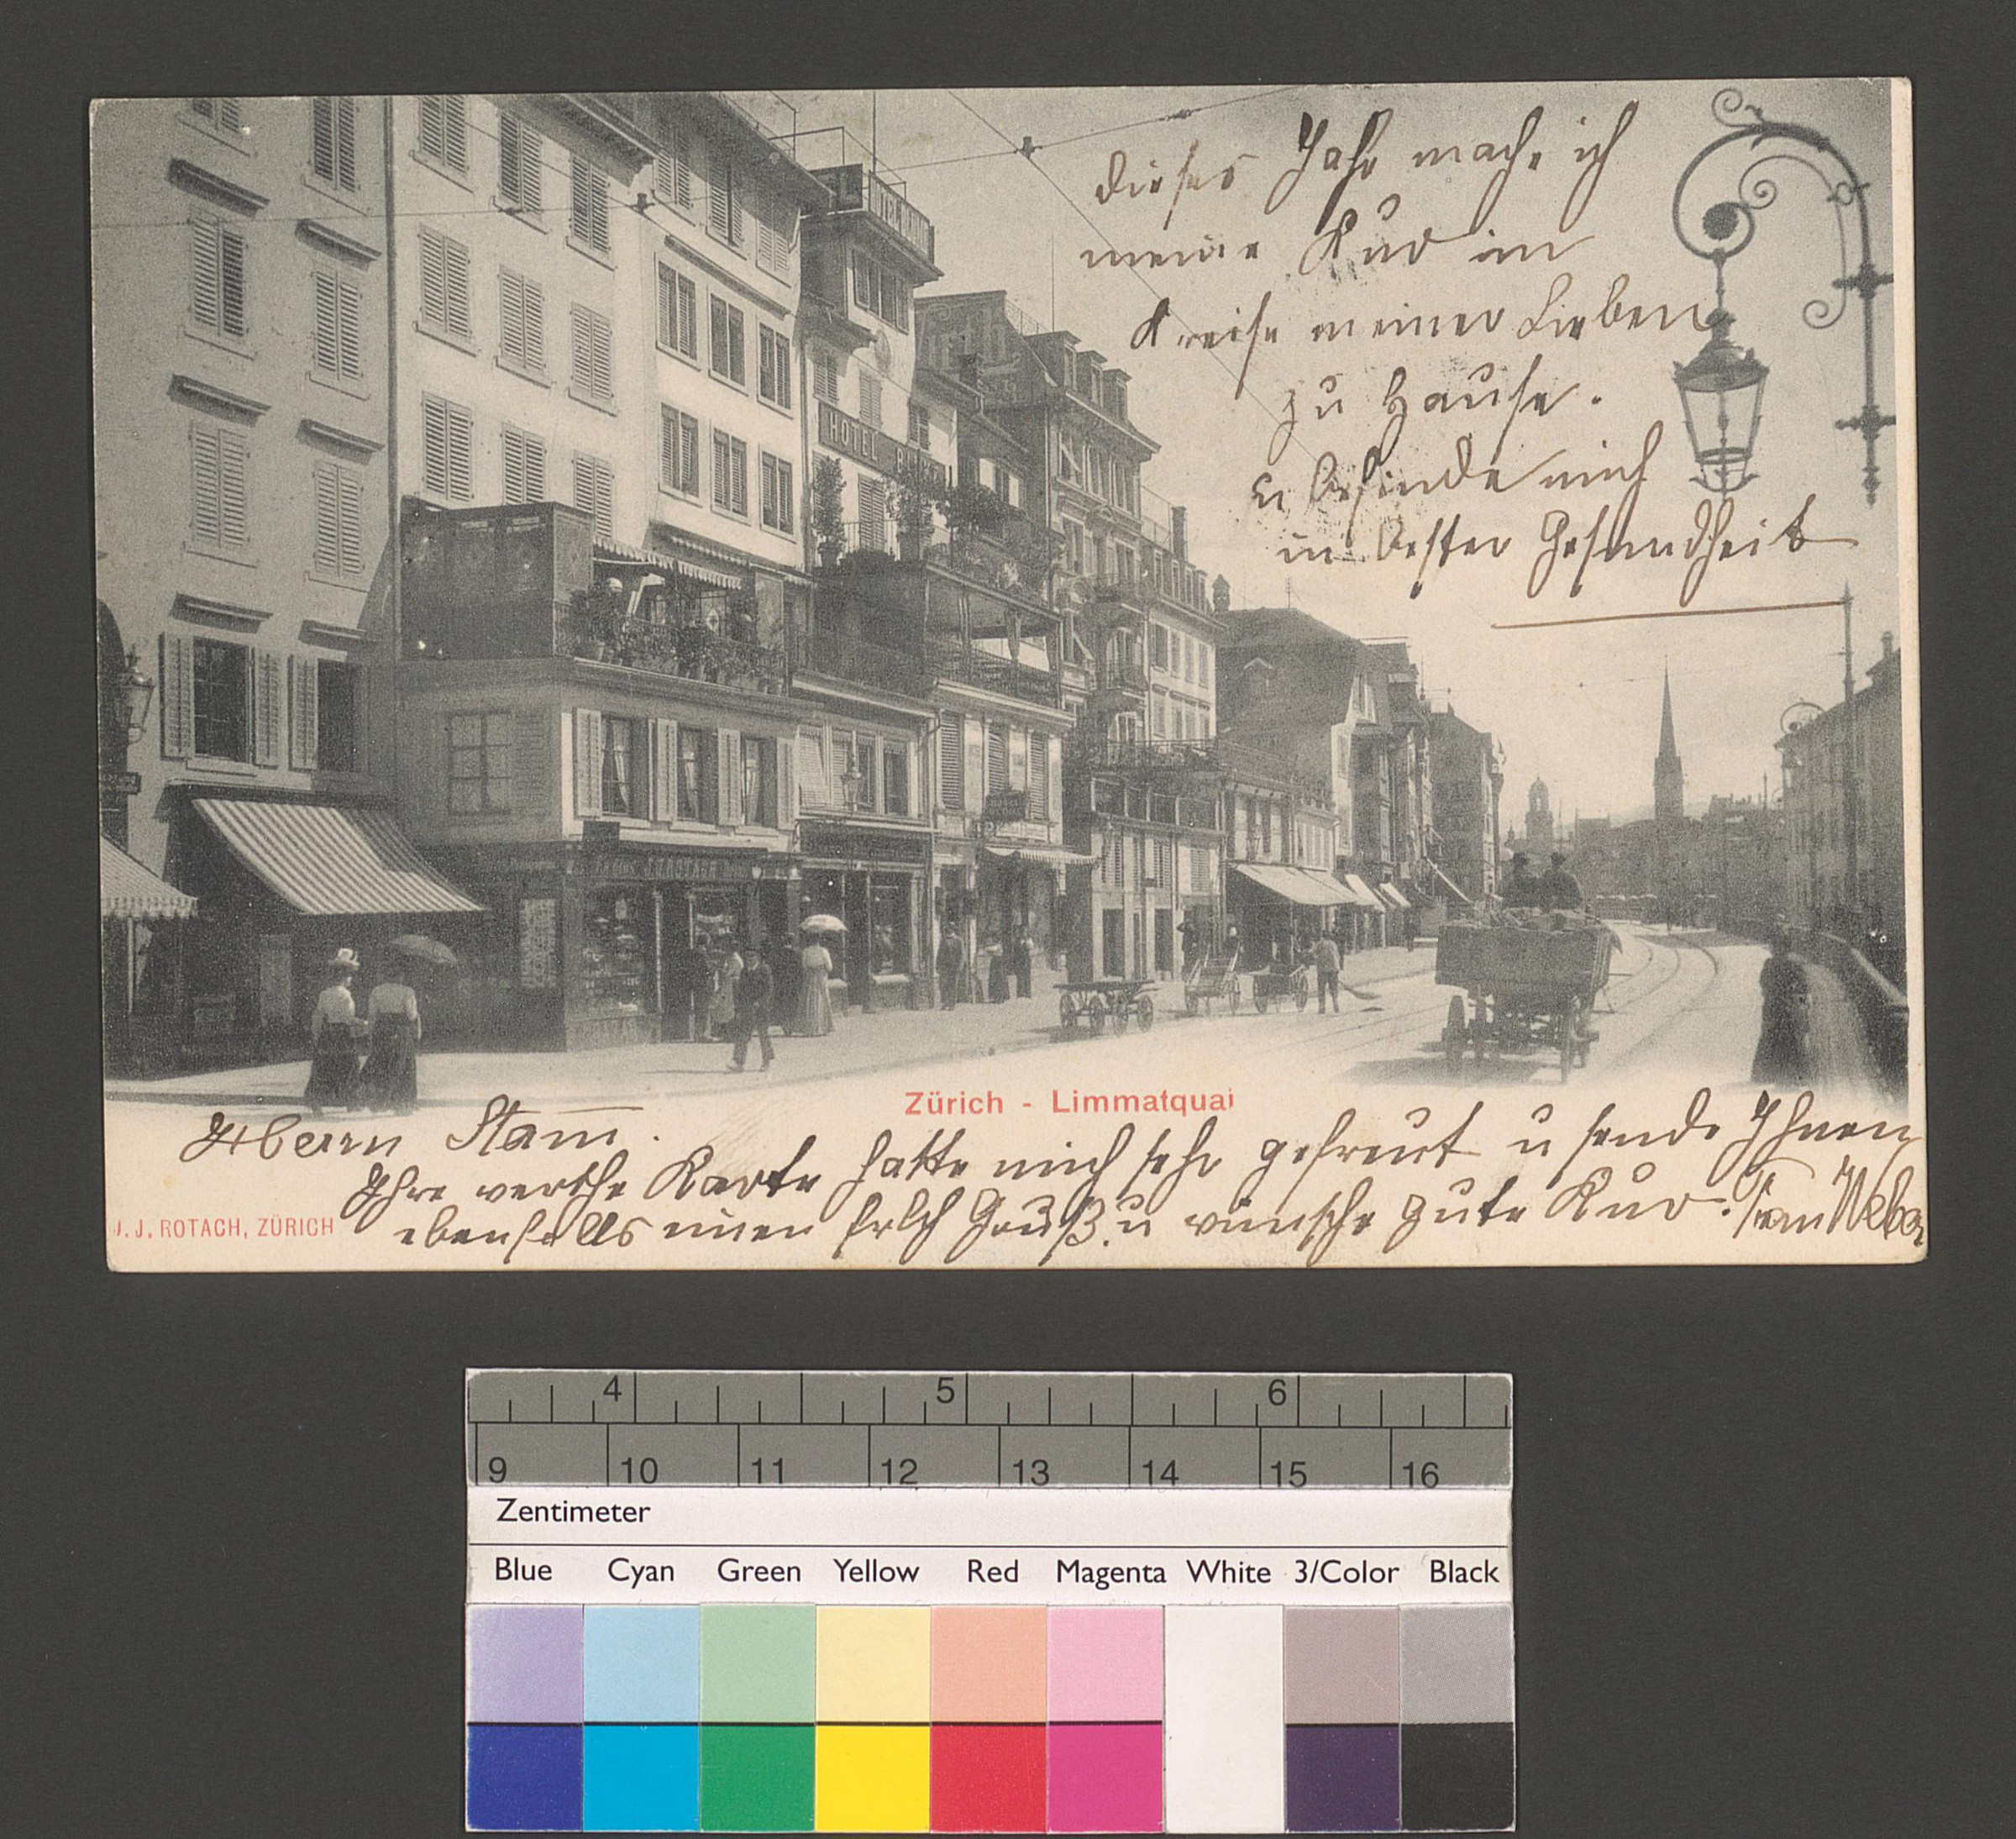 dieses Jahr mache ich
meine Kur im
Kreise meiner Lieben
zu Hause.
u befinde mich
in bester Gesundheit
HOTEL
Zürich - Limmatquai
Herrn Stam̅.
Ihre werthe Karte hatte mich sehr gefreut u sende Ihnen
ebenfalls einen frlch Gruß. u wünsche gute Kur. Frau Weber
J. J. ROTACH, ZÜRICH
4 5 6
9 10 11 12 13 14 15 16
Zentimeter
Blue Cyan Green Yellow Red Magenta White 3/Color Black